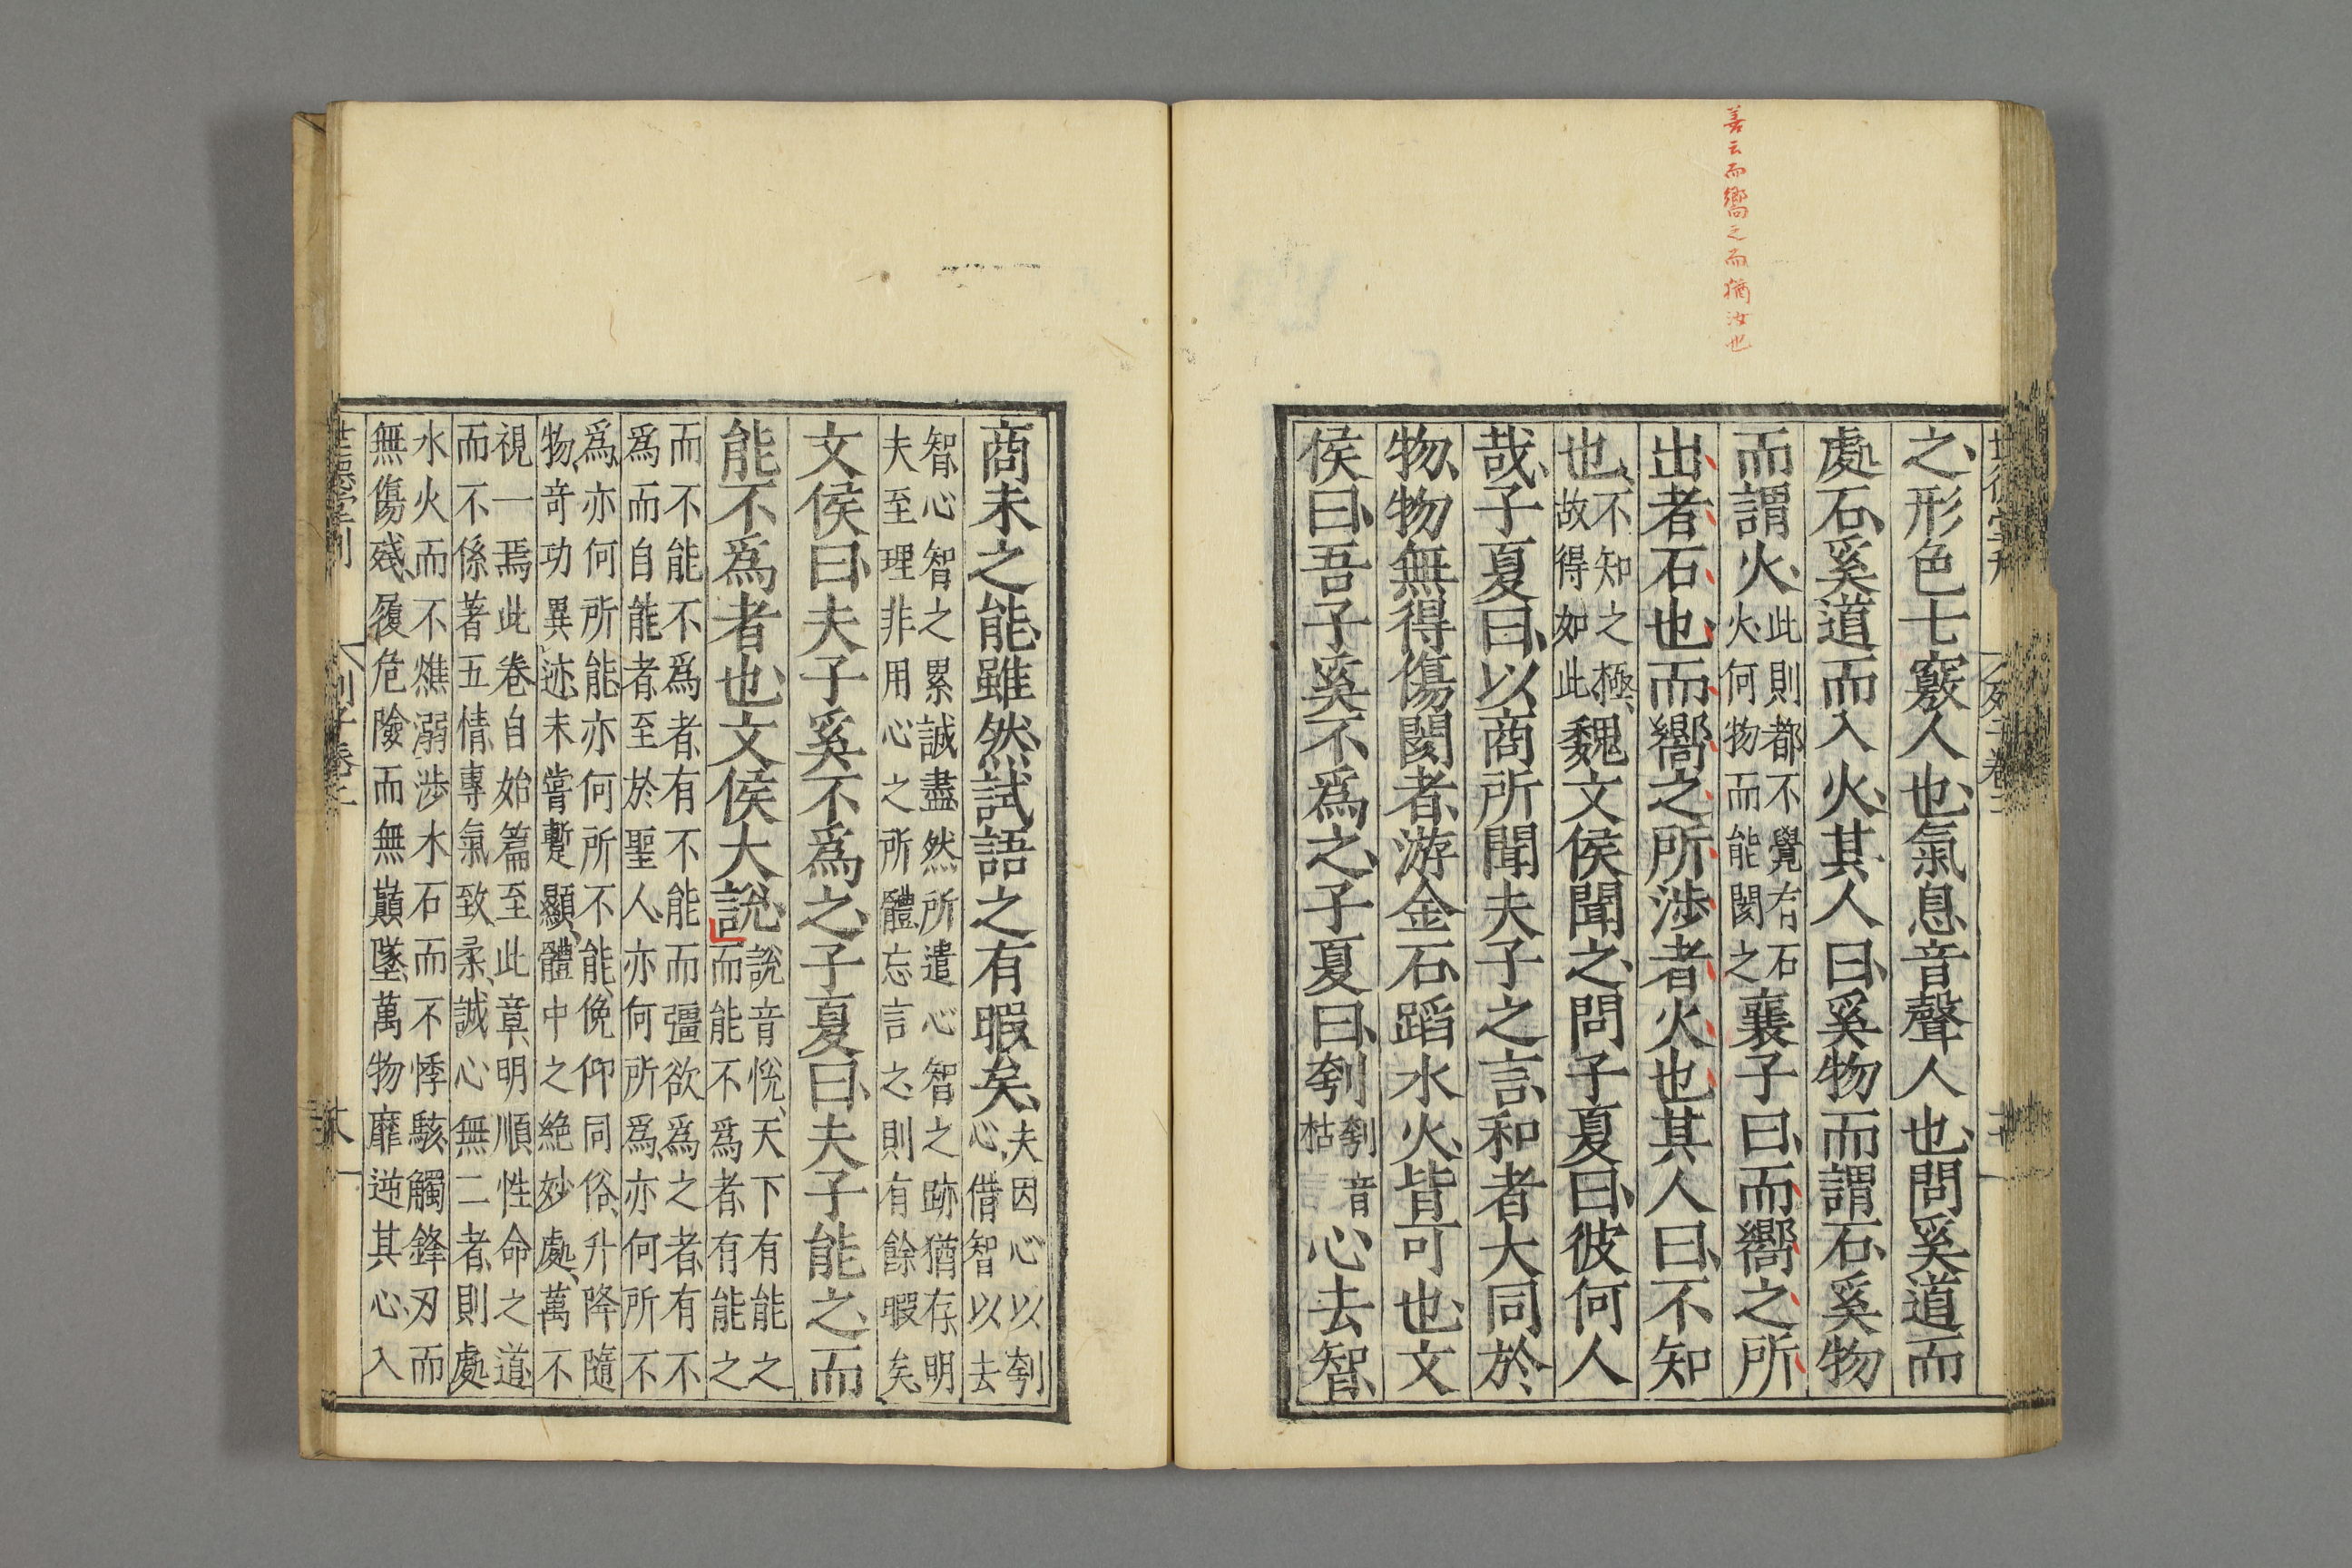 善云而嚮之而猶汝也
之形色七竅人也氣息音聲人也問奚道而
處石奚道而入火其人曰奚物而謂石奚物
而謂火此則都不覺有石
火何物而能閡之襄子曰而嚮之所
出者石也而嚮之所涉者火也其人曰不知
也不知之極
故得如此魏文侯聞之問子夏曰彼何人
哉子夏曰以商所聞夫子之言和者大同於
物物無得傷閡者游金石蹈水火皆可也文
侯曰吾子奚不爲之子夏曰刳刳音
枯心去智
商未之能雖然試語之有暇矣夫因心以刳
心借智以去
智心智之累誠盡然所遣心智之跡猶存明
夫至理非用心之所體忘言之則有餘暇矣
文侯曰夫子奚不爲之子夏曰夫子能之而
能不爲者也文侯大說說音悅天下有能之
而能不爲者有能之
而不能不爲者有不能而彊欲爲之者有不
爲而自能者至於聖人亦何所爲亦何所不
爲亦何所能亦何所不能俛仰同俗升降隨
物奇功異迹未嘗蹔顯體中之絶妙處萬不
視一焉此卷自始篇至此章明順性命之道
而不係著五情專氣致柔誠心無二者則處
水火而不燋溺涉木石而不悸駭觸鋒刃而
無傷殘履危險而無巔墜萬物靡逆其心入
世德堂刊
列子卷二